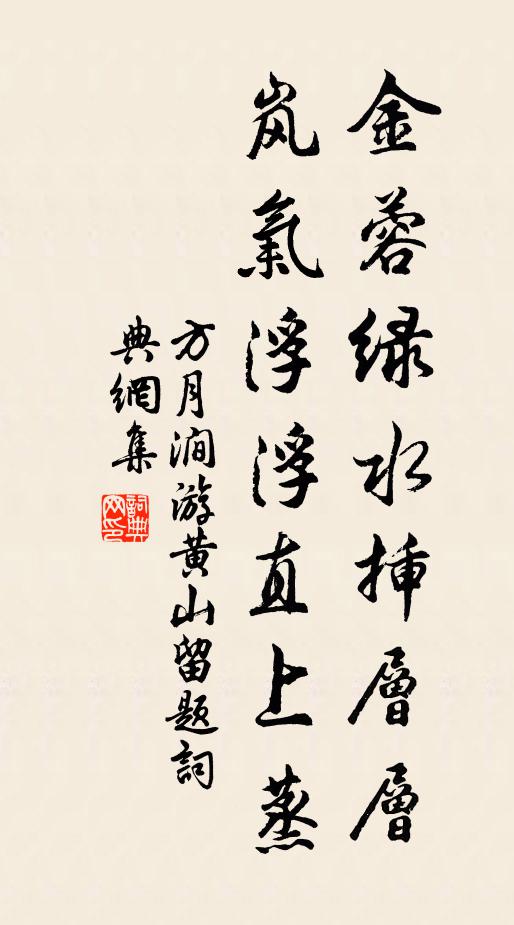 金蓉緑水揷層層
嵐氣浮浮直上蒸
方月澗游黄山留题詞
典網集
詞典
网印